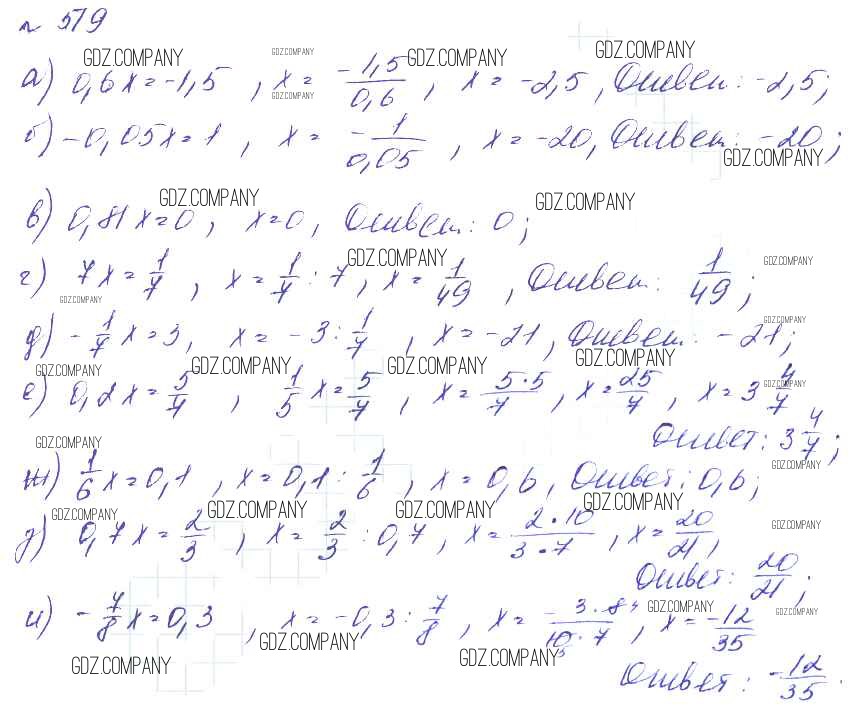 № 579
GDZ.COMPANY GDZ.COMPANY GDZ.COMPANY GDZ.COMPANY
а) 0,6x=-1,5, x= -1,5/0,6, x= -2,5, Ответ: -2,5;
GDZ.COMPANY
б) -0,05x=1, x= -1/0,05, x= -20, Ответ: -20;
GDZ.COMPANY
GDZ.COMPANY GDZ.COMPANY
в) 0,81x=0, x=0, Ответ: 0;
GDZ.COMPANY GDZ.COMPANY
г) 7x=1/7, x=1/7:7, x=1/49, Ответ: 1/49;
GDZ.COMPANY GDZ.COMPANY
д) -1/7x=3, x= -3:1/7, x= -21, Ответ: -21;
GDZ.COMPANY GDZ.COMPANY GDZ.COMPANY GDZ.COMPANY GDZ.COMPANY
е) 0,2x=5/7, 1/5x=5/7, x= 5·5/7, x=25/7, x=3 4/7
Ответ: 3 4/7;
GDZ.COMPANY GDZ.COMPANY
ж) 1/6x=0,1, x=0,1:1/6, x=0,6, Ответ: 0,6;
GDZ.COMPANY GDZ.COMPANY GDZ.COMPANY GDZ.COMPANY GDZ.COMPANY
з) 0,7x=2/3, x= 2/3:0,7, x= 2·10/3·7, x=20/21,
Ответ: 20/21;
GDZ.COMPANY GDZ.COMPANY
и) -7/8x=0,3, x= -0,3:7/8, x= - 3·8 4/10 5·7, x= -12/35
GDZ.COMPANY GDZ.COMPANY GDZ.COMPANY
Ответ: -12/35.